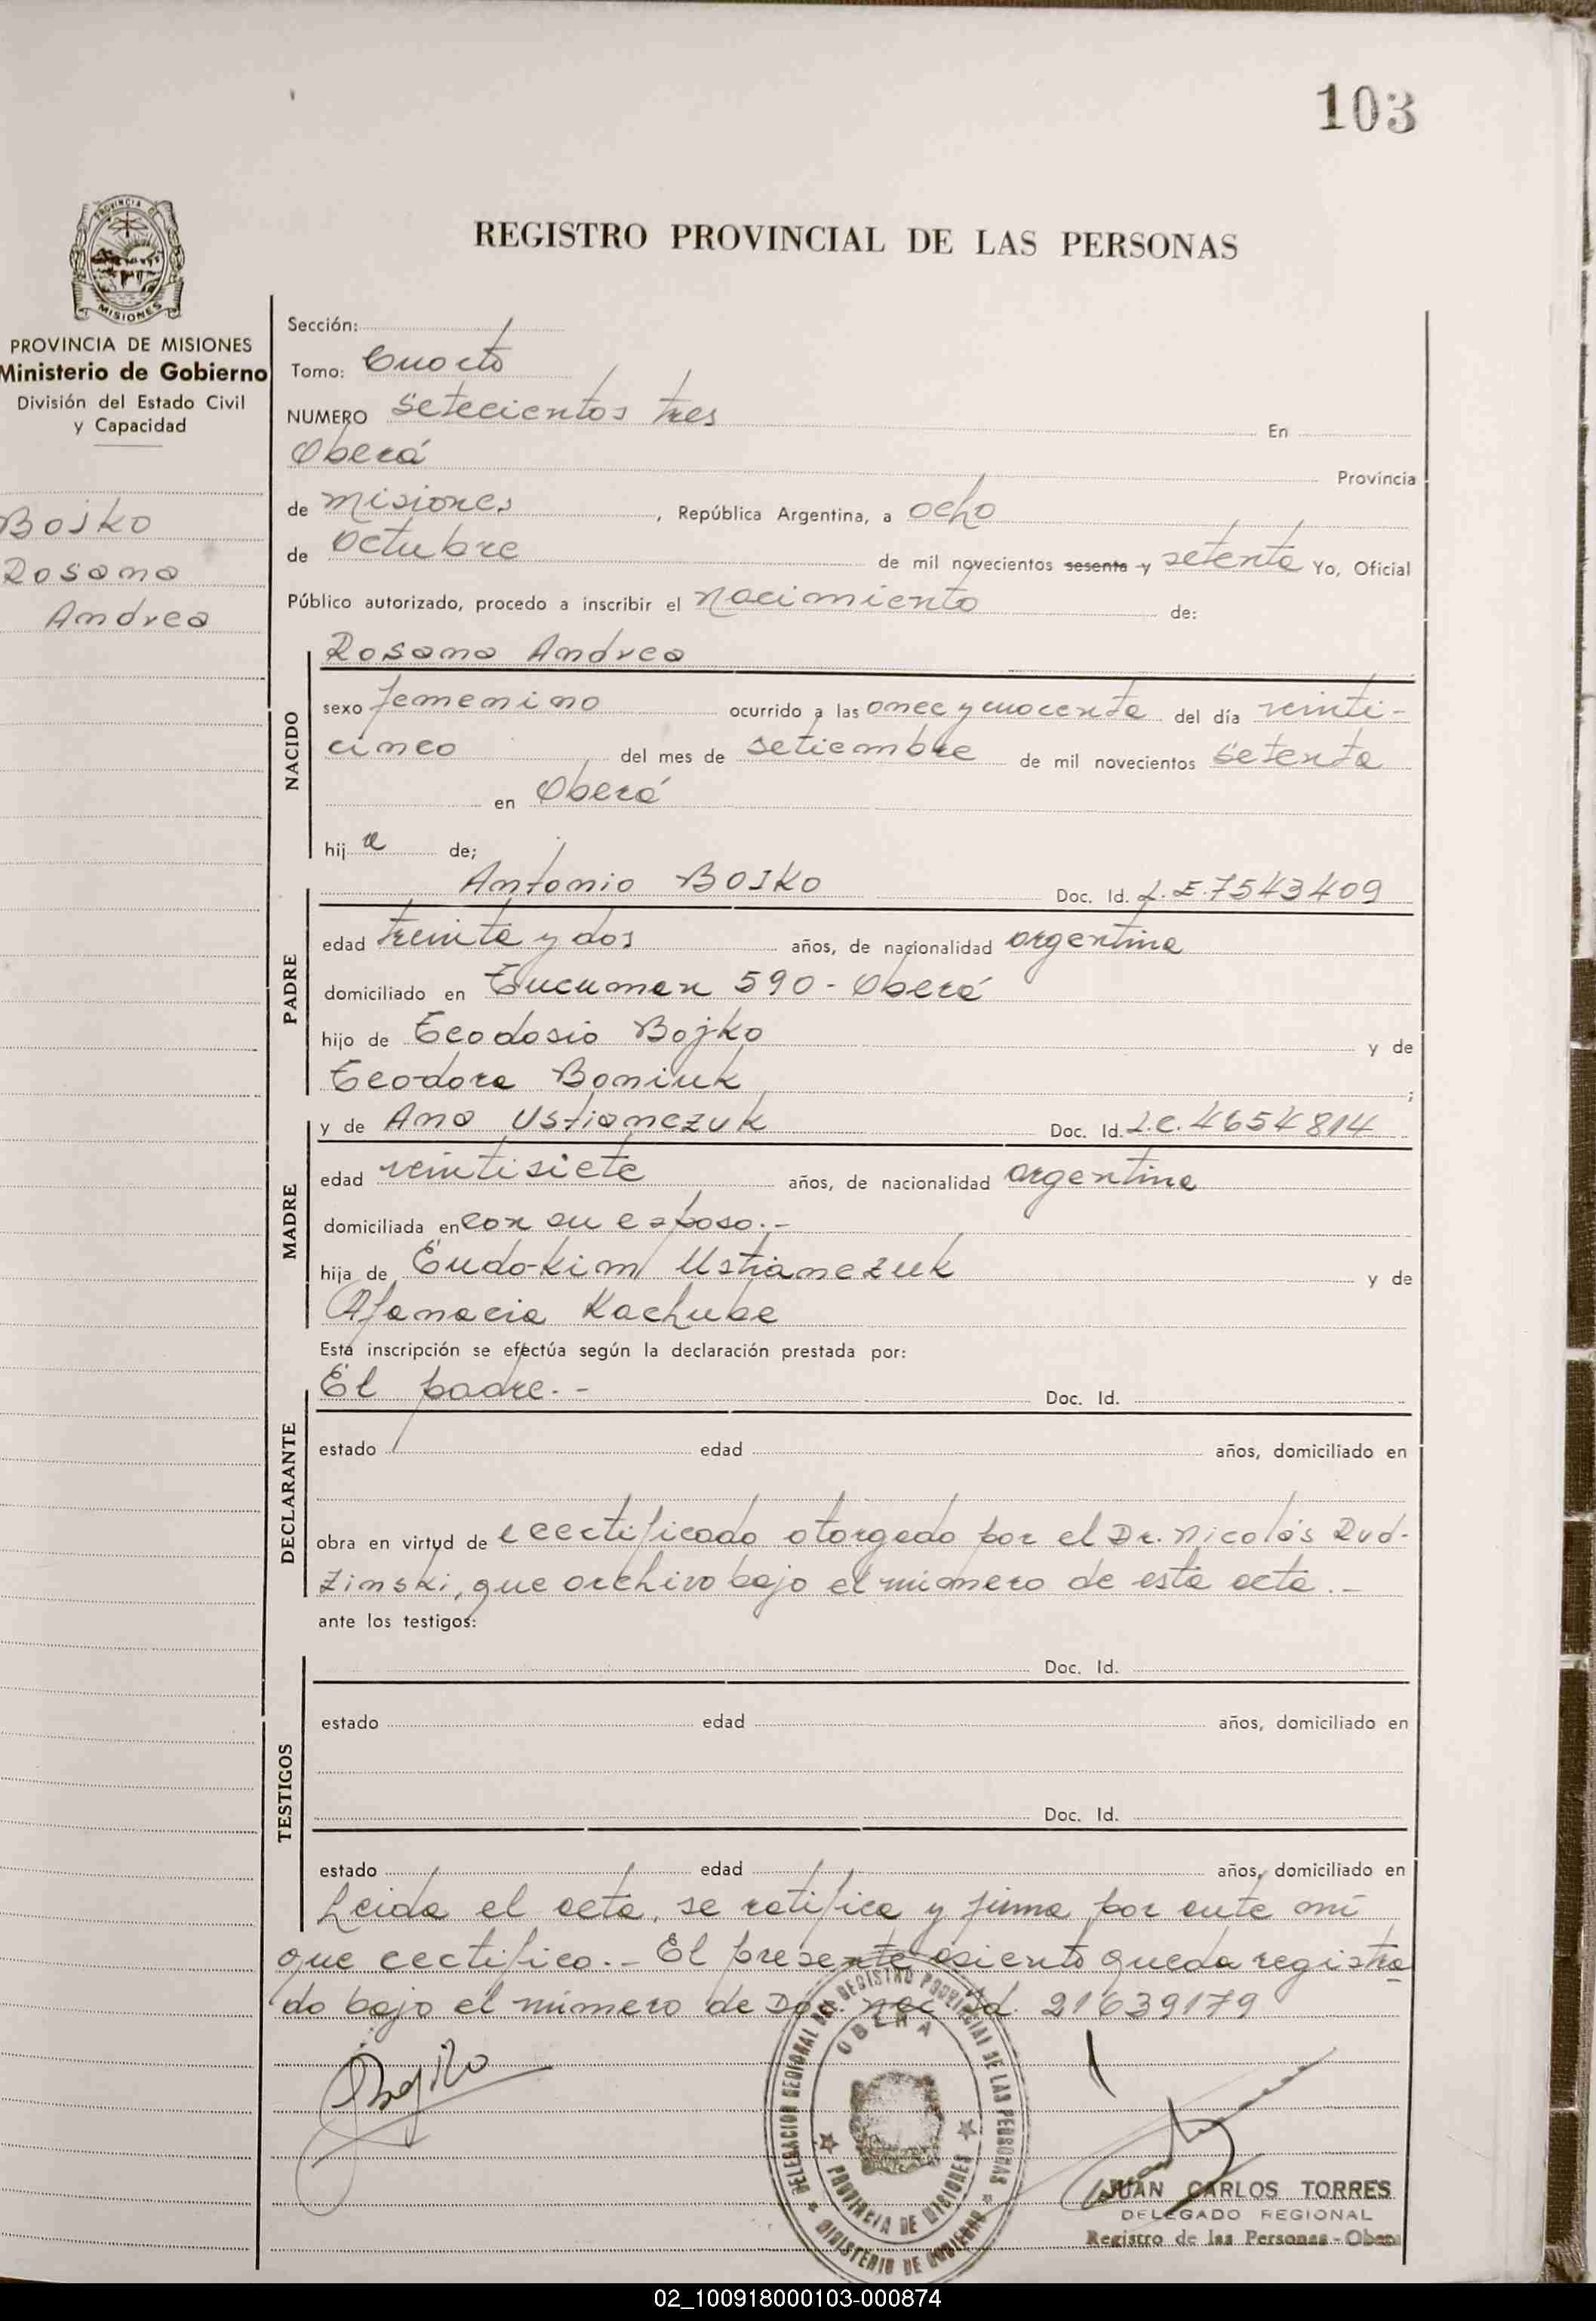 103
REGISTRO PROVINCIAL DE LAS PERSONAS
PROVINCIA DE MISIONES
PROVINCIA DE MISIONES
Ministerio de Gobierno
División del Estado Civil
y Capacidad
Bojko
Rosana
Andrea
Sección:
Tomo: Cuarto
NUMERO setecientos tres En
Oberá Provincia
de Misiones, República Argentina, a ocho
de Octubre de mil novecientos sesenta y setenta Yo, Oficial
Público autorizado, procedo a inscribir el nacimiento de:
NACIDO
Rosana Andrea
sexo femenino ocurrido a las once y cuarenta del día veinti-
cinco del mes de setiembre de mil novecientos setenta
en Oberá
hij a de;
PADRE
Antonio BOJKO Doc. Id. L.E.7543409
edad treinta y dos años, de nacionalidad argentina
domiciliado en Tucuman 590 - Oberá
hijo de Teodosio Bojko y de
Teodora Boniuk ;
MADRE
y de Ana Ustianczuk Doc. Id. L.C. 4654814
edad veintisiete años, de nacionalidad argentina
domiciliada en con su esposo.-
hija de Eudo-kim Ustianczuk y de
Afanacia Kachuba
Esta inscripción se efectúa según la declaración prestada por:
DECLARANTE
El padre.- Doc. Id.
estado edad años, domiciliado en
obra en virtud de certificado otorgado por el Dr. Nicolás Rud-
zinski, que archivo bajo el número de esta acta.-
ante los testigos:
TESTIGOS
Doc. Id.
estado edad años, domiciliado en
Doc. Id.
estado edad años, domiciliado en
Leida el acta, se ratifica y firma por ante mi
que certifico.- El presente asiento queda registra-
do bajo el número de Doc. nac. Id. 21639179
Bojko
DELEGACION REGIONAL DEL REGISTRO PROVINCIAL DE LAS PERSONAS
OBERA
PROVINCIA DE MISIONES
MINISTERIO DE GOBIERNO
JUAN CARLOS TORRES
DELEGADO REGIONAL
Registro de las Personas - Obera
02_100918000103-000874